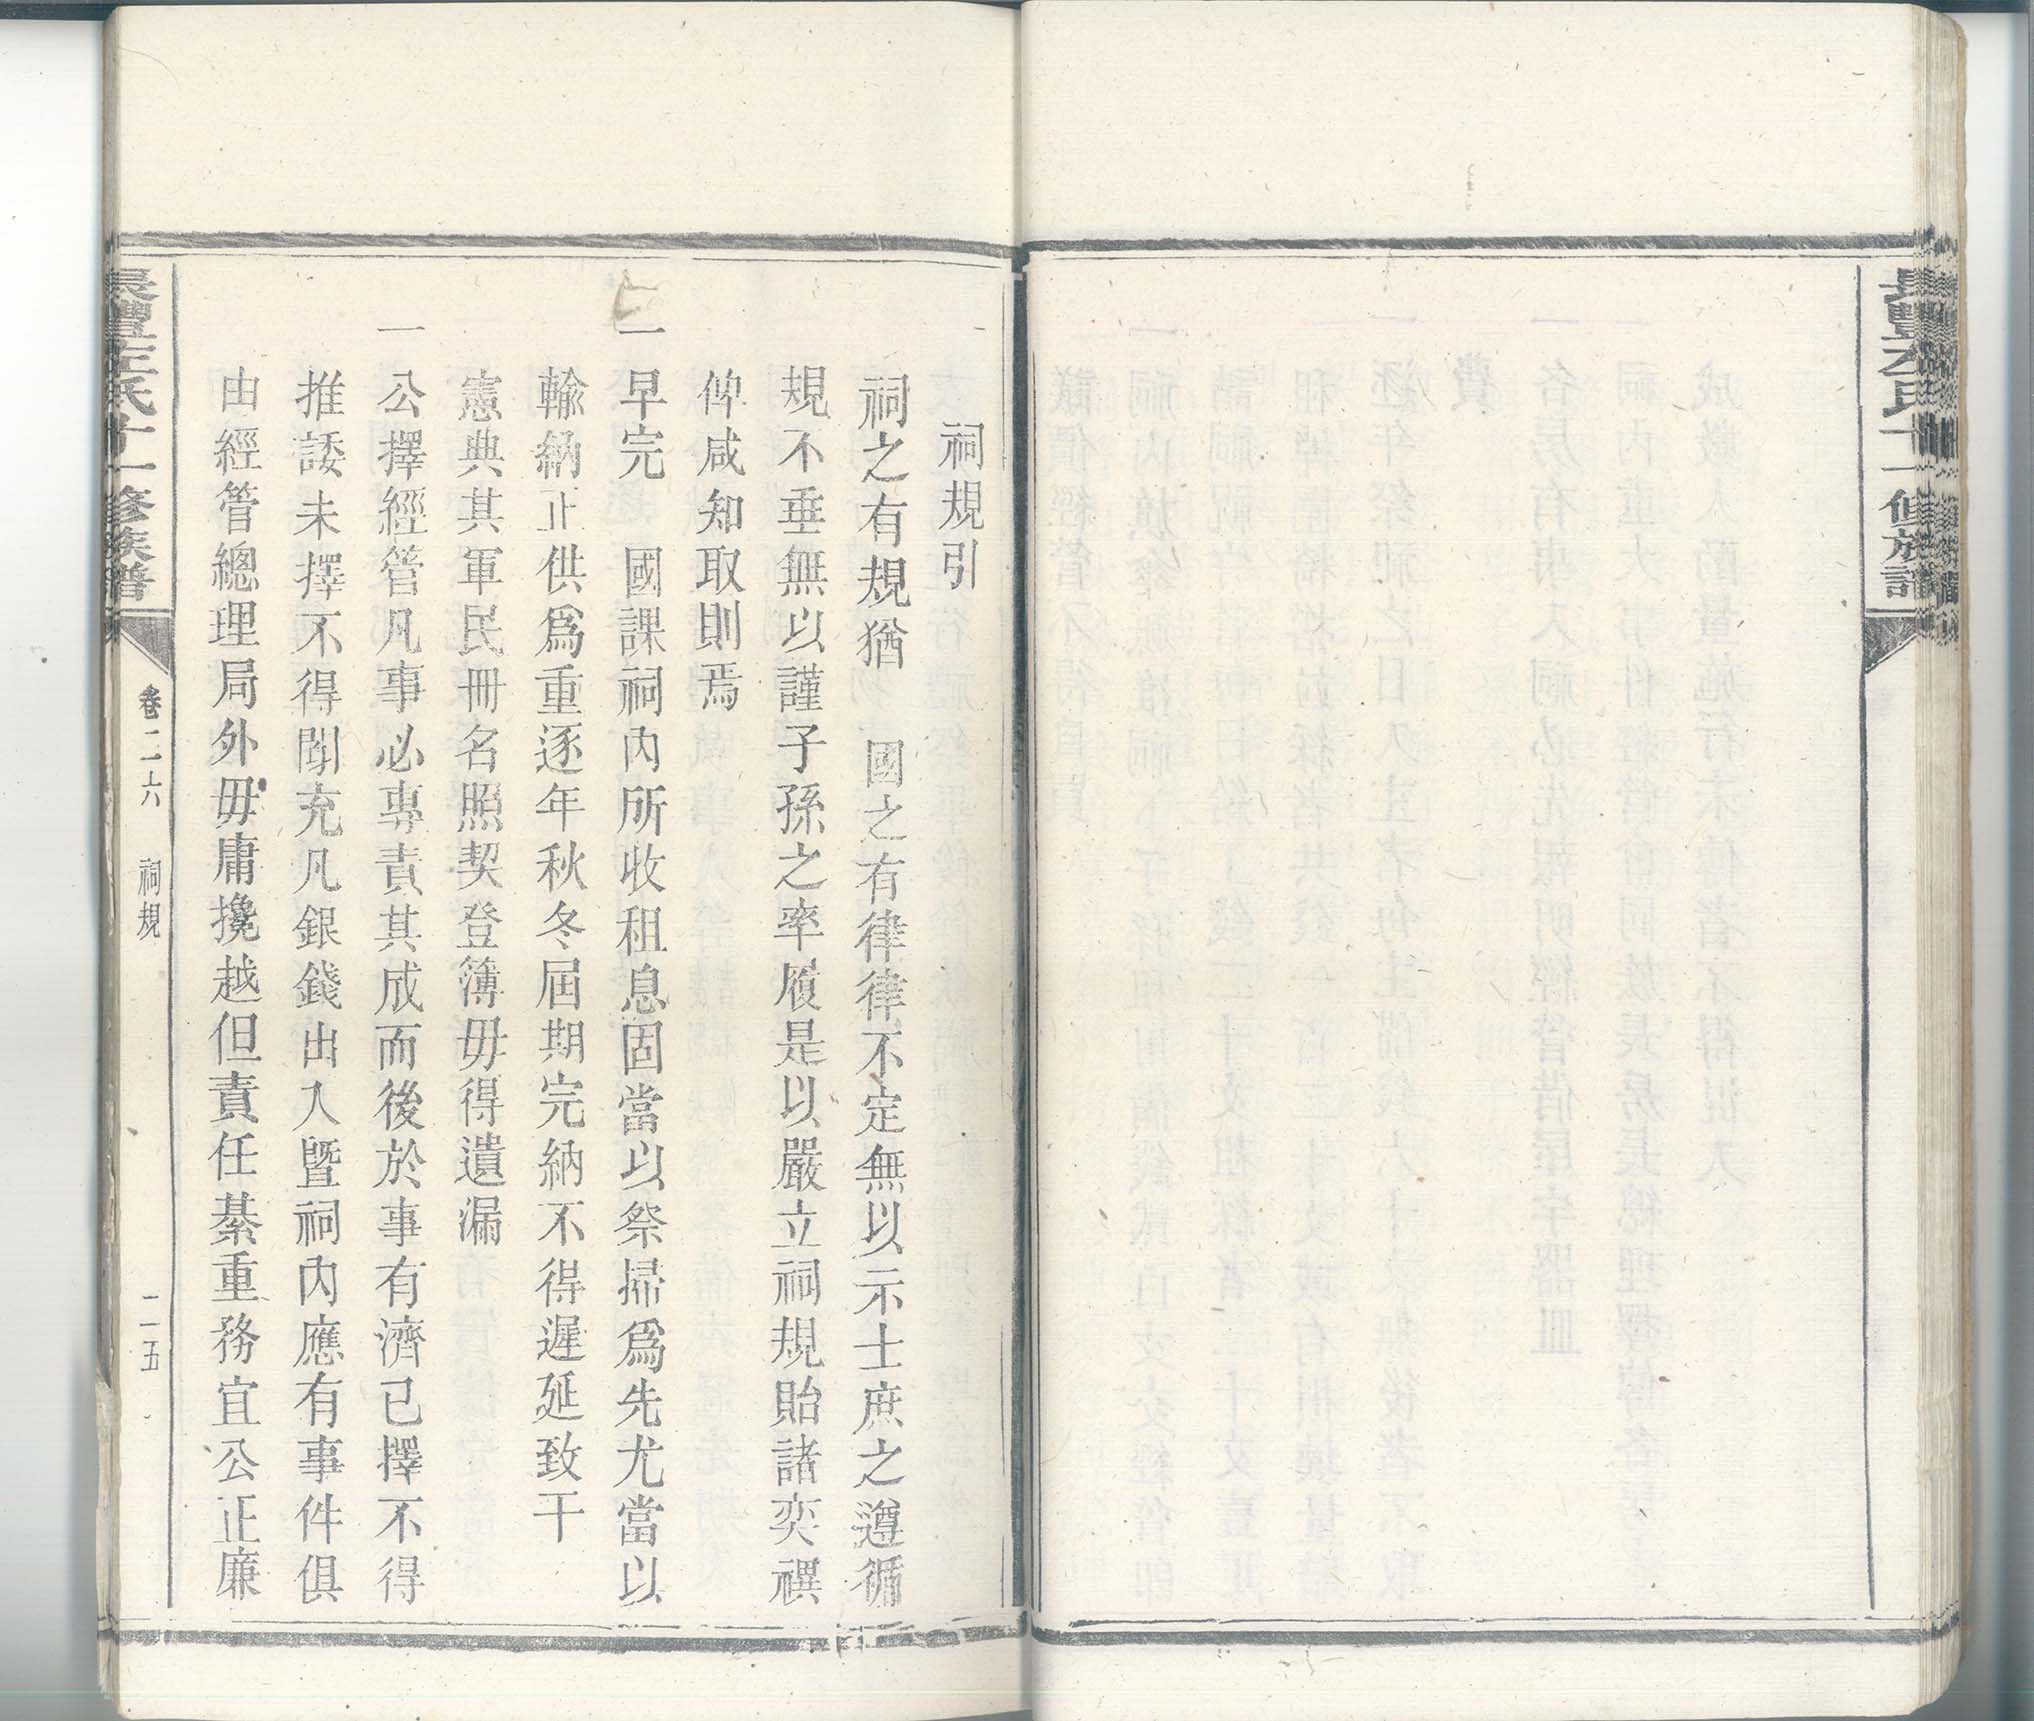 祠規引
祠之有規猶　國之有律律不定無以示士庶之遵循
規不垂無以謹子孫之率履是以嚴立祠規貽諸奕禩
俾咸知取則焉
一早完　國課祠內所收租息固當以祭掃爲先尤當以
輸納正供爲重逐年秋冬屆期完納不得遲延致干
憲典其軍民冊名照契登簿毋得遺漏
一公擇經管凡事必專責其成而後於事有濟已擇不得
推諉未擇不得閗充凡銀錢出入暨祠內應有事件俱
由經管總理局外毋庸攙越但責任綦重務宜公正廉
長豐李氏十一修族譜
卷二六
祠規
二五